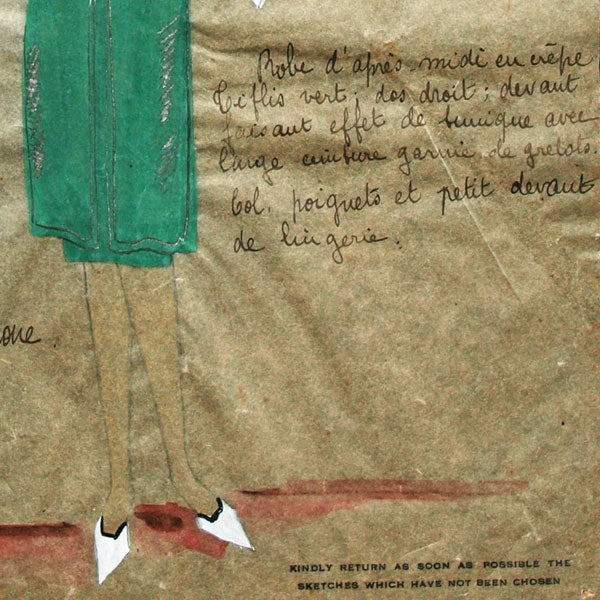 Robe d'après-midi en crêpe
Tiflis vert; dos droit; devant
faisant effet de tunique avec
large ceinture garnie de grelots.
Col, poignets et petit devant
de lingerie.
KINDLY RETURN AS SOON AS POSSIBLE THE
SKETCHES WHICH HAVE NOT BEEN CHOSEN